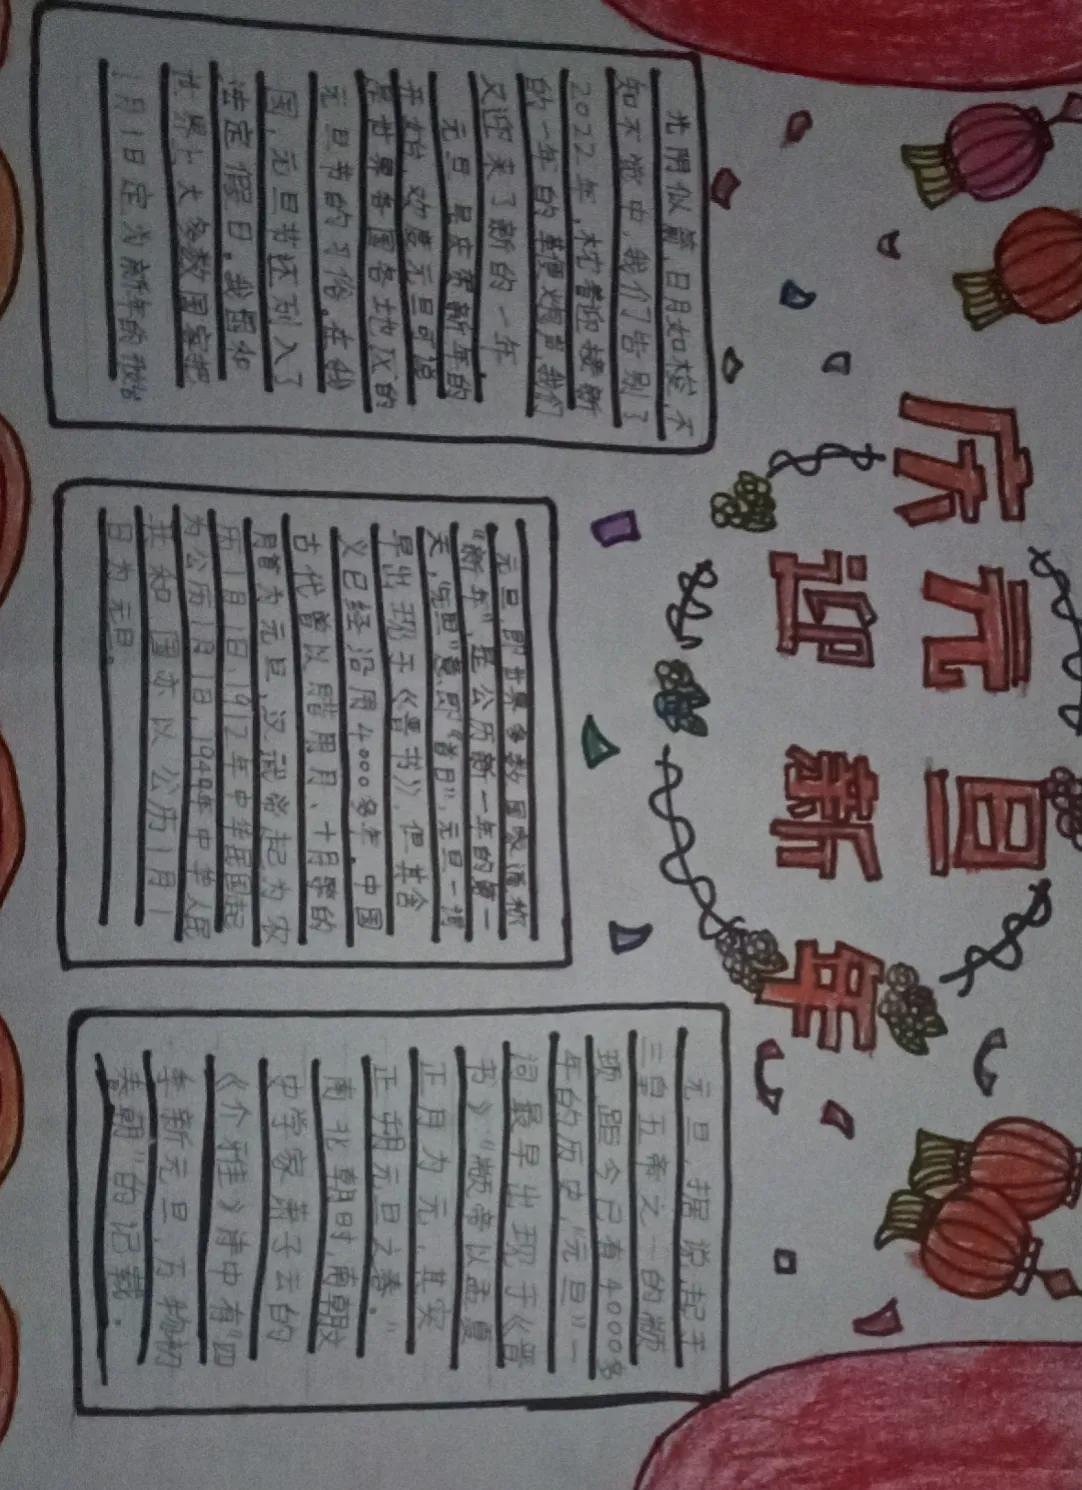 庆元旦
迎新年
光阴似箭,日月如梭,不
知不觉中,我们告别了
2022年,枕着迎接新
的一年的鞭炮声,我们
又迎来了新的一年
元旦是庆祝新年的
开始,欢庆元旦可说
是世界各国各地区的
元旦节的习俗。在我
国,元旦节还列入了
法定假日。我国和
世界上大多数国家把
1月1日定为新年的开始
元旦,即世界多数国家通称
"新年",是公历新一年的第一
天,"元旦"意即"首日",元旦一词
早出现于《晋书》,但其含
义已经沿用4000多年,中国
古代曾以腊月、十月等的
月首为元旦,汉武帝起为农
历1月1日、1912年中华民国起
为公历1月1日,1949年中华人民
共和国亦以公历1月1
日为元旦。
元旦,据说起于
三皇五帝之一的颛
顼距今已有4000多
年的历史,"元旦"一
词最早出现于《晋
书》"颛帝以孟夏
正月为元,其实
正朔元旦之春。"
南北朝时,南朝文
史学家萧子云的
《介雅》诗中有"四
季新元旦,万物初
春朝"的记载。